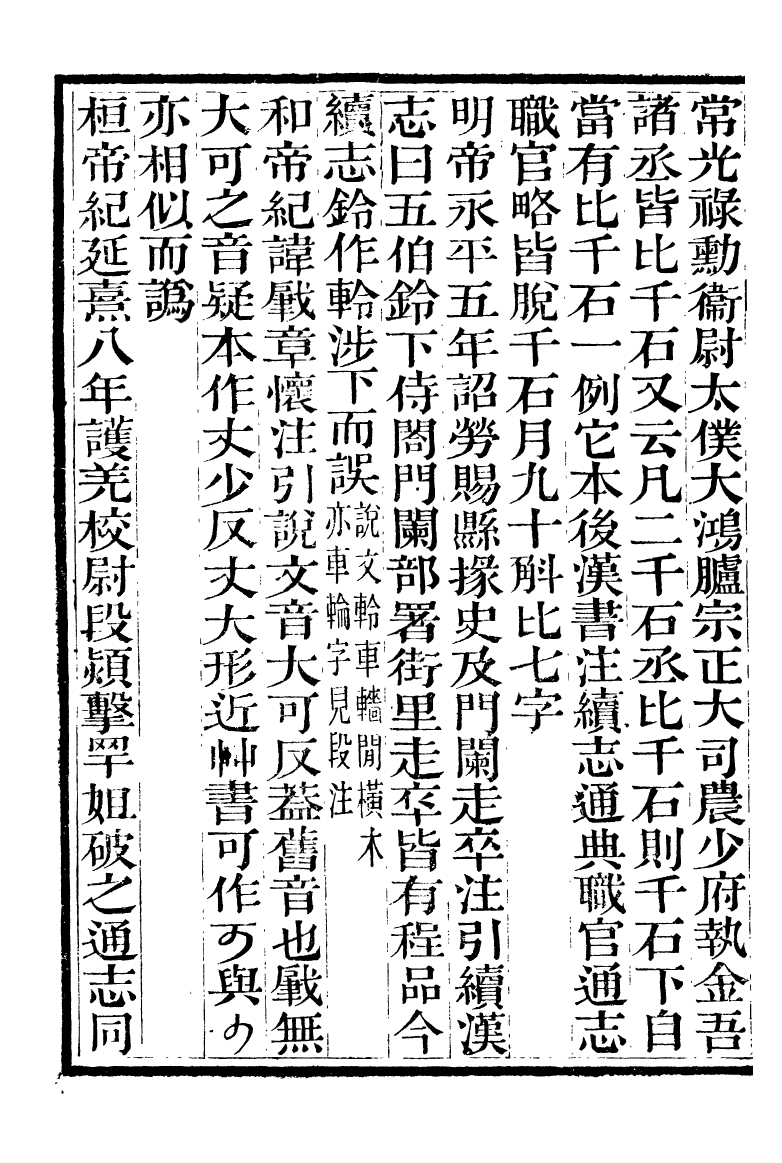 常光祿勳衞尉太僕大鴻臚宗正大司農少府執金吾
諸丞皆比千石又云凡二千石丞比千石則千石下自
當有比千石一例它本後漢書注續志通典職官通志
職官略皆脫千石月九十斛比七字
明帝永平五年詔勞賜縣掾史及門闌走卒注引續漢
志曰五伯鈴下侍閤門闌部署街里走卒皆有程品今
續志鈴作軨涉下而誤說文軨車轖閒橫木
亦車輪字見段注
和帝紀諱㽃章懷注引說文音大可反葢舊音也㽃無
大可之音疑本作丈少反丈大形近艸書可作可與少
亦相似而譌
桓帝紀延熹八年護羌校尉段熲擊䍐姐破之通志同